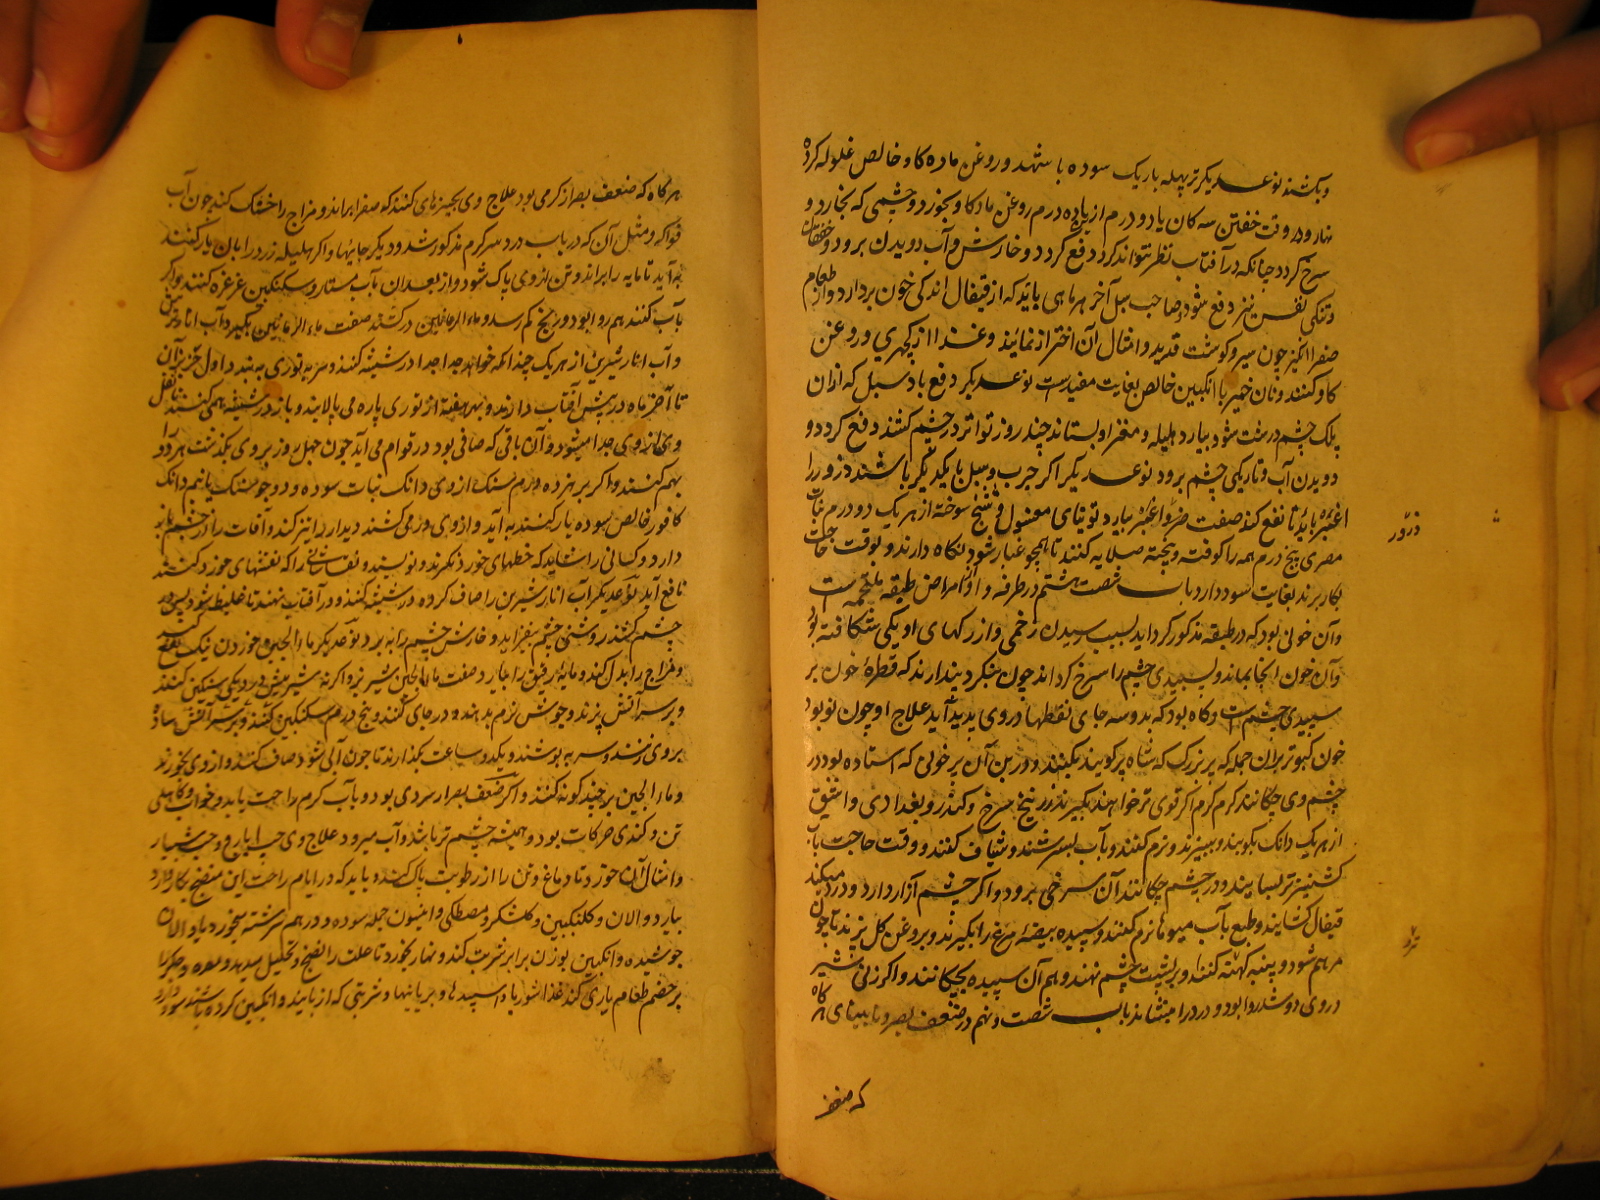 و بکشند نوعدیکر تربهله باریک سوده با شهد و روغن ماده کاو خالص غلوله کرده
نهار و در وقت خفتن سه کان یا دو درم از یاده درم روغن ماد کاو بخورد و چشمی که بخارد و
سرخ کردد چنانکه در آفتاب نظر نتواند کرد دفع کردد و خارش و آب دویدن برود و خفقان
و تنکی نفس نیز دفع شود و صاحب سبل آخر هر ماهی باید که از قیفال اندکی خون بردارد و از طعام
صفرا انکیز چون سیر و کوشت قدید و امثال آن احتراز نماید و غذا از کچهری و روغن
کاو کنند و نان خمیر با انکبین خالص بغایت مفیدست نوعدیکر دفع باد سبل که ازان
پلک چشم درشت شود بیارد هلیله و مغز او بستاند چند روز تواتر در چشم کشند دفع کردد و
دویدن آب و تاریکی چشم برود نوعدیکر اکر جرب و سبل با یکدیکر باشند ذرور را
اغبر باید تا نفع کند صفت ذرور اغبر بیارد توتیای مغسول و شنج سوخته از هر یک دو درم نبات
مصری پنج درم همه را کوفته و بیخته صلایه کنند تا همچو غبار شود نکاه دارند و بوقت حاجت
بکار برند بغایت سود دارد باب شصت هشتم در طرفه و از امراض طبقه ملتحمه است
و آن خونی بود که در طبقه مذکور کرد اید بسبب رسیدن زخمی و از رکهای او یکی شکافته بود
و آن خون انجا بماند و سپیدی چشم را سرخ کرداند چون بنکرد پندارند که قطرۀ خون بر
سپیدی چشم است و کاه بود که بدو سه جای نقطها در وی بدید آید علاج او چون نو بود
خون کبوتر بران جمله که پر بزرک که شاه پر کویند بکنند و در بن آن پر خونی که استاده بود در
چشم وی چکانند کرم کرم اکر قوی تر خواهند بکیرند زرنیخ سرخ و کندر و بغدادی و اشق
از هر یک دانک بکوبند و ببیزند و نرم کنند و بآب بسرشند و شیاف کنند و وقت حاجت بآب
کشنیز تر بسایند و در چشم چکانند آن سرخی برود و اکر چشم آزار دارد و درد میکند
قیفال کشایند و طبع بآب میوها نرم کنند و سپیده بیضۀ مرغ را بکیرند و بروغن کل بزنند تا چون
مرهم شود و پنبه کهنه کنند و بر پشت چشم نهند و هم آن سپیده بچکانند و اکر زنی شیر
در وی دوشد روا بود و درد را بنشاند باب شصت و نهم در ضعف بصر و نابینای هر کاه
ذرور
که ضعف
هر کاه که ضعف بصر از کرمی بود علاج وی بچیزهای کنند که صفرا براند و مزاج را خشک کند چون آب
فواکه و مثل آن که در باب درد سر کرم مذکور شد و دیکر جایها و اکر هلیله زرد را بان یار کنند
به آید تا مایه را براند و تن از وی پاک شود و از بعد ان بآب و سکنکبین غرغره کنند و اکر
بآب کنند هم روا بود و رنج کم رسد و ماء الرمانین در کشند صفت ماء الرمانین بکیرد آب انار ترش
و آب انار شیرین از هر یک چندانکه خواهد جدا جدا در شیشه کنند و سر به توری به بندد اول حزیران
تا آخر ماه در پیش آفتاب دارند و هر هفته از توری پاره می پالایند و باز در شیشه همی کنند تا ثفل
وی از وی جدا میشود و آن باقی که صافی بود در قوام می آید چون چهل روز بر وی بکذشت هر دو را
بهم کنند و اکر بر هر ده درم سنک ازو دانک نبات سوده و دو جو مشک یا نیم دانک
کافور خالص سوده یار کنند به آید و از وی در می کشند دیدار را تیز کند و آفات را از چشم باز
دارد و کسانی را شاید که خطهای خورد نکرند و نویسند و نقاشانی را که نقشهای خورد کنند
نافع آید نوعدیکر آب انار شیرین را صاف کرده در شیشه کنند و در آفتاب نهند تا غلیظ شود پس در
چشم کشند روشنی چشم بیفزاید و خارش چشم را به برد نوعدیکر ماء الجبن خوردن نیک نفع کند
و مزاج را بدل کند و مایۀ رقیق را بیارد صفت ماء الجبن شیر بز و اکر نه شیر میش در دیک سنکین کنند
و بر سر آتش پزند و جوش نرم بدهند و در جای کنند و پنج درم سکنکبین کنند و بر سر آتش ساده
بر وی زنند و سر به پوشند و یکدو ساعت بکذارند تا چون آبی شود صاف کنند و از وی بخورند
و ماء الجبن بر چند کونه کنند و اکر ضعف بصر از سردی بود و بآب کرم راحت یابد و خواب و کاهلی
تن و کندی حرکات بود و همیشه چشم تر باشد و آب میرود علاج وی حب ایارج و حب شبیار
و امثال آن خورد تا دماغ و تن را از رطوبت پاک کند و باید که در ایام راحت این منضج بکار دارد
بیارد و الان و کلنکبین و کلشکر و مصطکی و انیسون جمله سوده و در هم سرشته بخورد یا والان
جوشیده و انکبین بوزن برابر شربت کند و نهار بخورد تا علت را نضج و تحلیل میدهد و معده و جکر را
بر هضم طعام یاری کند غذا شوربا و اسپیدبا و بریانها و شربتی که از بادیان و انکبین کرده باشند سود دارد